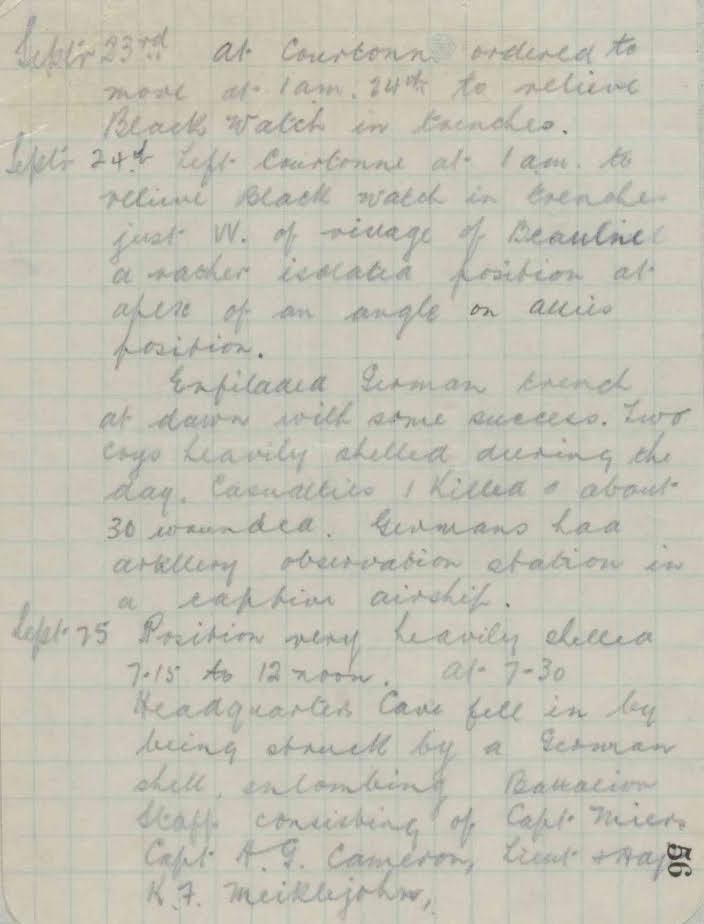 Sept'r 23rd At Courtonne ordered to
move at 1 am. 24th to relieve
Black Watch in trenches.
Sept'r 24th Left Courtonne at 1 am. to
relieve Black Watch in trenches
just W. of village of Beaulne
a rather isolated position at
apex of an angle on allies
position.
Enfiladed German trench
at dawn with some success. Two
Coys heavily shelled during the
day. Casualties 1 Killed & about
30 wounded. Germans had
artillery observation station in
a captive airship.
Sept. 25 Position very heavily shelled
7-15 to 12 noon. At 7-30
Headquarters Cave fell in by
being struck by a German
shell, entombing Battalion
Staff consisting of Capt. Miers
Capt A.G. Cameron, Lieut & Adj
K.F. Meiklejohn,
56